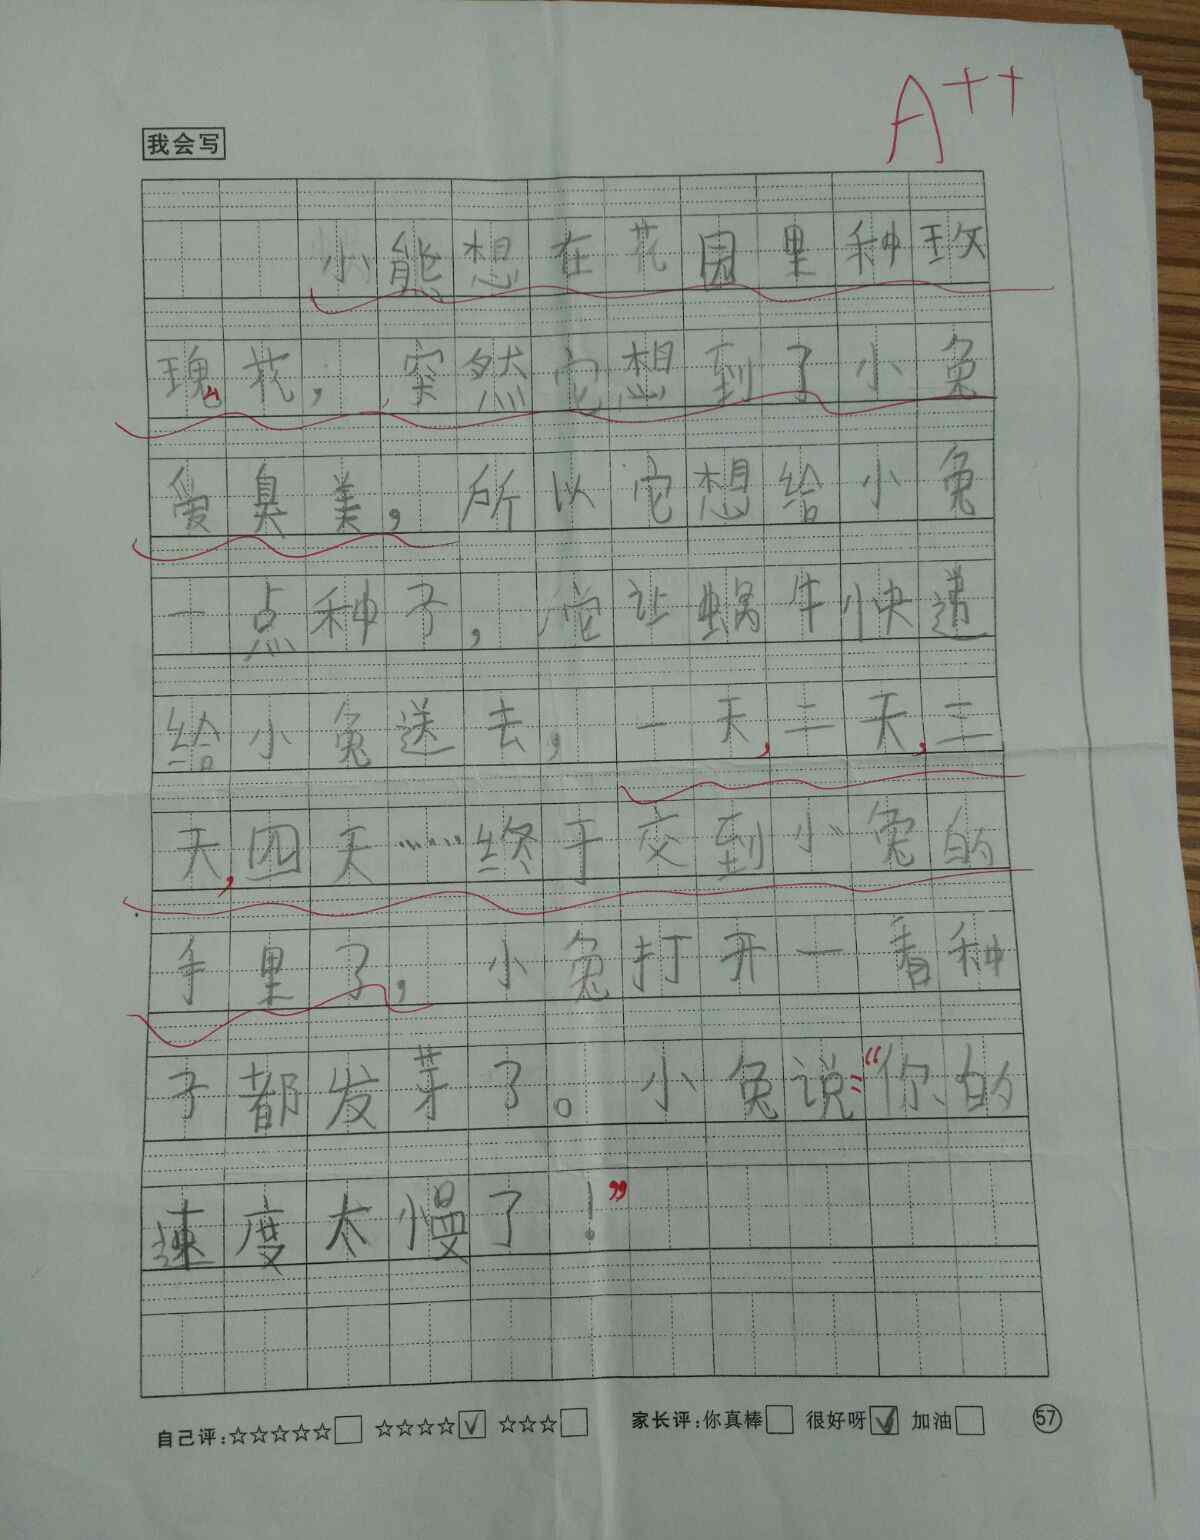 A++
我会写
小能想在花园里种玫
瑰花，突然它想到了小兔
爱臭美，所以它想给小兔
一点种子，它让蜗牛快递
给小兔送去，一天，二天，三
天，四天……终于交到小兔的
手里了，小兔打开一看种
子都发芽了。小兔说：“你的
速度太慢了！”
自己评:☆☆☆☆☆□ ☆☆☆☆☑ ☆☆☆□ 家长评:你真棒□ 很好呀☑ 加油□ 57